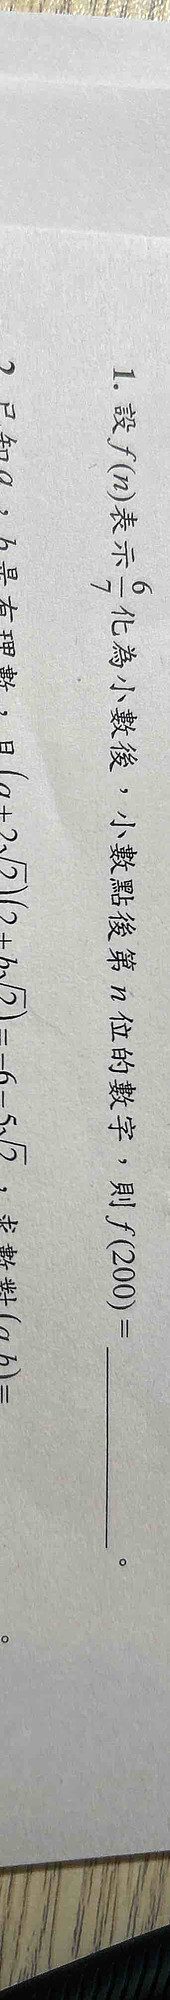 1. 設f(n)表示6/7化為小數後，小數點後第n位的數字，則f(200)=________。
2 已知a，b是有理數，且(a+2√2)(2+b√2)=-6-5√2，求數對(a,b)= 。